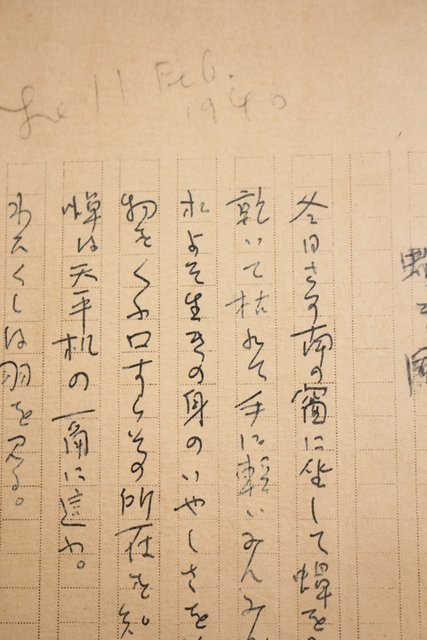 le 11 Feb.
1940
蟬を彫
冬日さす南の窗に坐して蟬を
乾いて枯れて手に輕いみんみ
およそ生きの身のいやしさを
物をくふ口すらその所在を知
蟬は天平机の一角に這ふ。
わたくしは羽を見る。